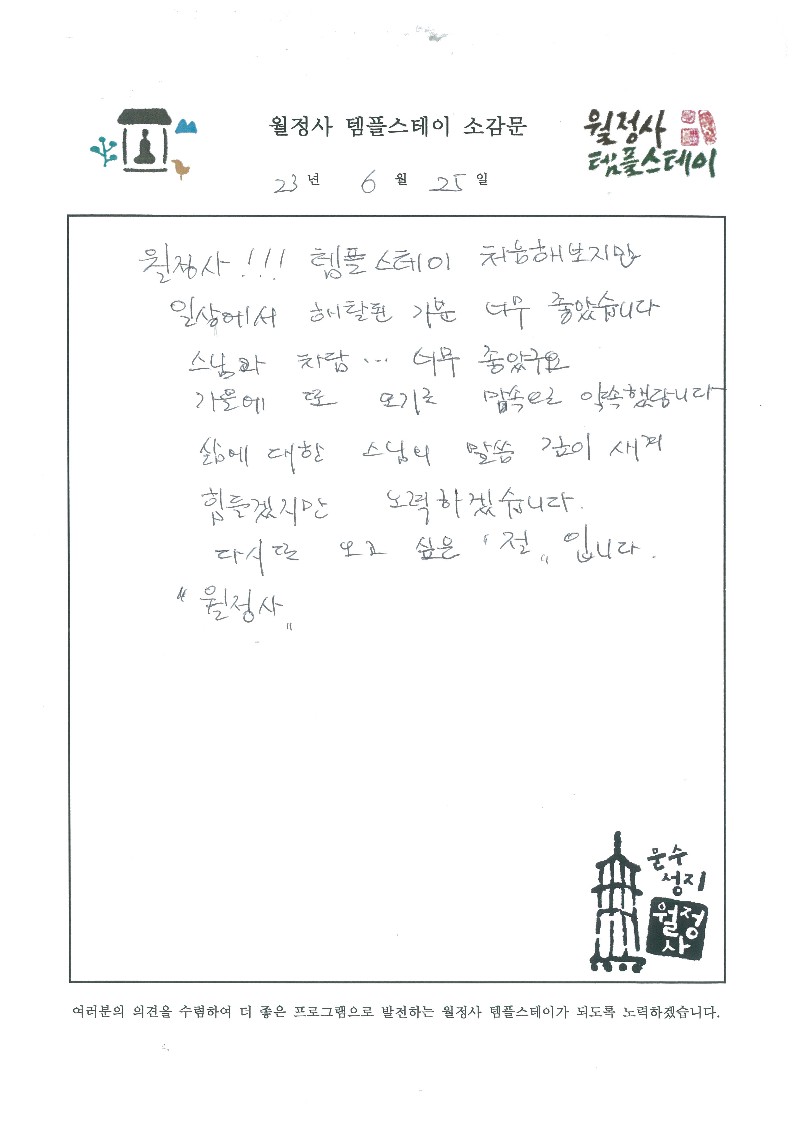 월정사 템플스테이 소감문
월정사
템플스테이
23년 6월 25일
월정사!!! 템플스테이 처음해보지만
일상에서 해탈된 기분 너무 좋았습니다
스님과 차담... 너무 좋았구요
가을에 또 오기로 맘속으로 약속했답니다
삶에 대한 스님의 말씀 깊이 새겨
힘들겠지만 노력하겠습니다.
다시 또 오고 싶은 "절" 입니다.
"월정사"
문수
성지
월정
사
여러분의 의견을 수렴하여 더 좋은 프로그램으로 발전하는 월정사 템플스테이가 되도록 노력하겠습니다.